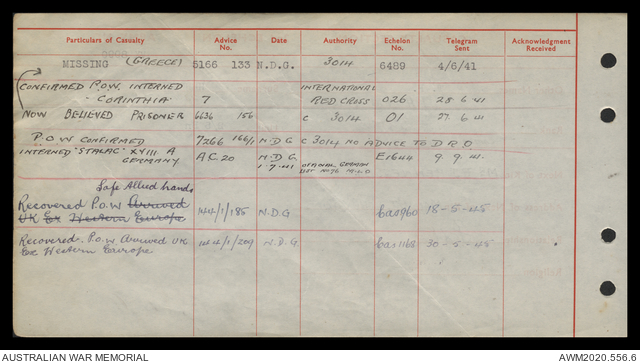 Particulars of Casualty Advice No. Date Authority Echelon No. Telegram Sent Acknowledgment Received
MISSING (GREECE) 5166 133 N.D.G. 3014 6489 4/6/41
CONFIRMED P.O.W. INTERNED INTERNATIONAL
- CORINTHIA 7 RED CROSS 026 28 6 41
NOW BELIEVED PRISONER 6636 156 C 3014 01 27 6 41
P.O.W CONFIRMED 7266 166/1 N.D.G C 3014 NO ADVICE TO D R O
INTERNED "STALAG" XVIII A A.C. 20 N.D.G. OFFICIAL GERMAN E1644 9 9 41.
GERMANY 1 7 41 LIST No 76
Safe Allied hands
Recovered P.O.W Arrived 144/1/185 N.D.G Cas960 18-5-45
UK Ex Western Europe
Recovered P.O.W Arrived UK 144/1/209 N.D.G. Cas1168 30-5-45
Ex Western Europe
AUSTRALIAN WAR MEMORIAL AWM2020.556.6